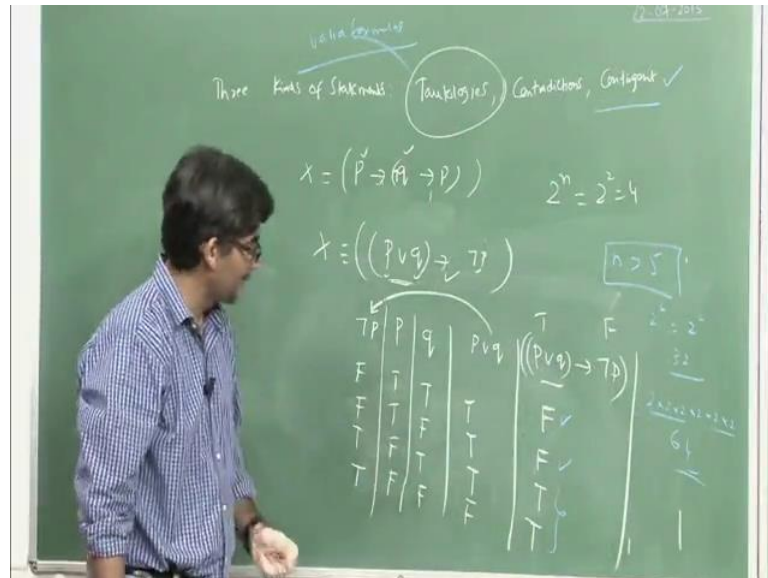 12-09-2013
valid formulas
Three Kinds of Statements: Tautologies, Contradictions, Contingent ✓
X ≡ (p → (q → p))
2ⁿ = 2² = 4
X ≡ ((p ∨ q) → ¬p)
n > 5
T F
¬p | p | q | p ∨ q | ((p ∨ q) → ¬p) |
32
F T T T F ✓
2×2×2×2×2×2
F T F T F ✓
64
T F T T T
T F F F T